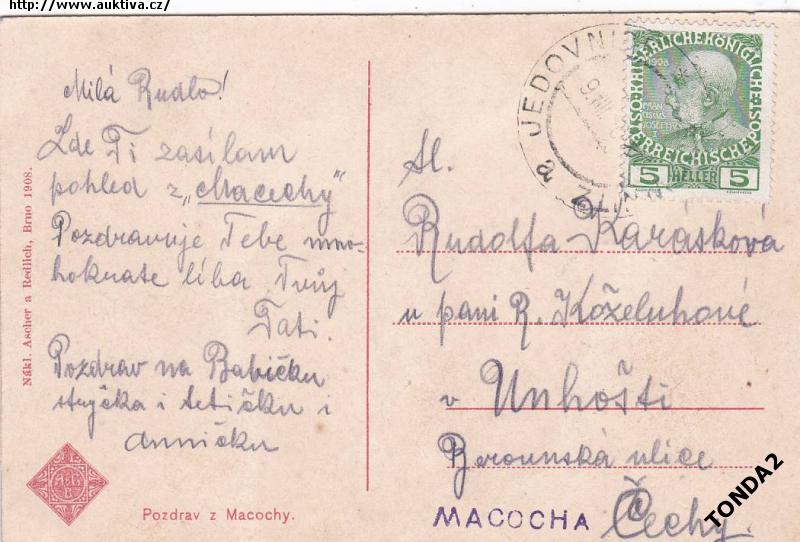 http://www.auktiva.cz/
Milá Rudlo!
Zde Ti zasílam
pohled z „Macechy"
Pozdravuje Tebe mno-
hokrate líba Tvůj
Tati.
Pozdrav na Babičku
strýčka i tetičku i
Anničku
Nákl. Ascher a Redlich, Brno 1908.
Pozdrav z Macochy.
JEDOVNI
a
KAISERLICHE KÖNIGLICHE
ÖSTERREICHISCHE
1908
5 HELLER 5
Sl.
Rudolfa Karásková
u pani R. Koželuhové
v Unhošti
Berounská ulice
MACOCHA Čechy.
TONDA2